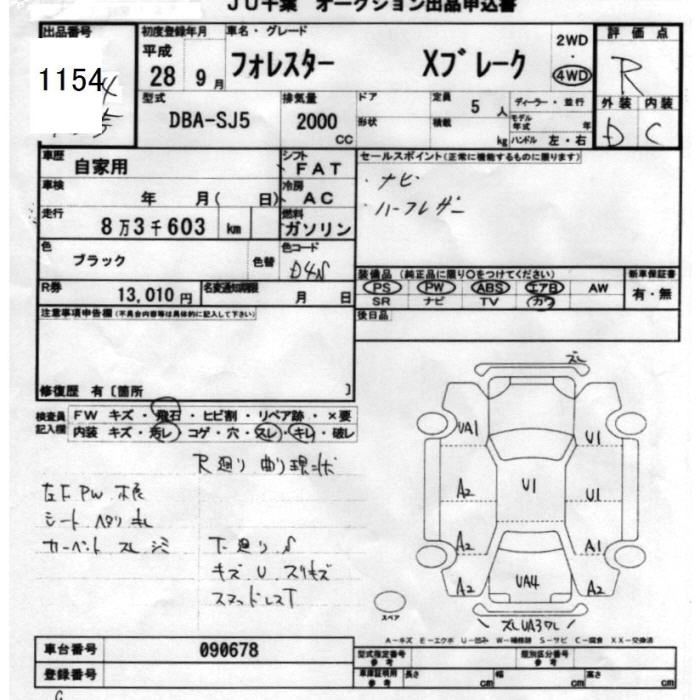 JU千葉 オークション出品申込書
出品番号 初度登録年月 車名・グレード 評価点
1154 平成 28 9月 フォレスター Xブレーク 2WD 4WD R
型式 DBA-SJ5 排気量 2000 CC ドア 定員 5人 ディーラー・並行 外装 内装
形状 積載 kg モデル年式 年 ハンドル 左・右 D C
車歴 自家用 シフト FAT セールスポイント(正常に機能するものに限ります)
車検 年 月( 日) 冷房 AC ナビ
走行 8万3千603 km 燃料 ガソリン ハーフレザー
色 ブラック 色替 色コード D4S
装備品(純正品に限り○をつけてください) 新車保証書
R券 13,010円 名変通知期限 月 日 PS PW ABS エアB AW 有・無
SR ナビ TV カワ
注意事項申告欄(不具合内容等は具体的に記入して下さい) 後日品
修復歴 有〔箇所 〕
検査員記入欄 FW キズ・飛石・ヒビ割・リペア跡・×要
内装 キズ・汚レ・コゲ・穴・スレ・キレ・破レ
R廻り 曲り 現状
左F PW 不良
シート ヘタリ キレ
カーペット スレ シミ
下廻り S
キズ U スリキズ
スマットレスT
スレ
UA1 U1
A2 U1 U1
A2 A1
A2 UA4 A2
スレUA3ワレ
スペア
A-キズ E-エクボ U-凹み W-補修跡 S-サビ C-腐食 XX-交換済
車台番号 090678 型式指定番号 参考 類別区分番号 参考
登録番号 車庫証明用 参考 長さ cm 幅 cm 高さ cm